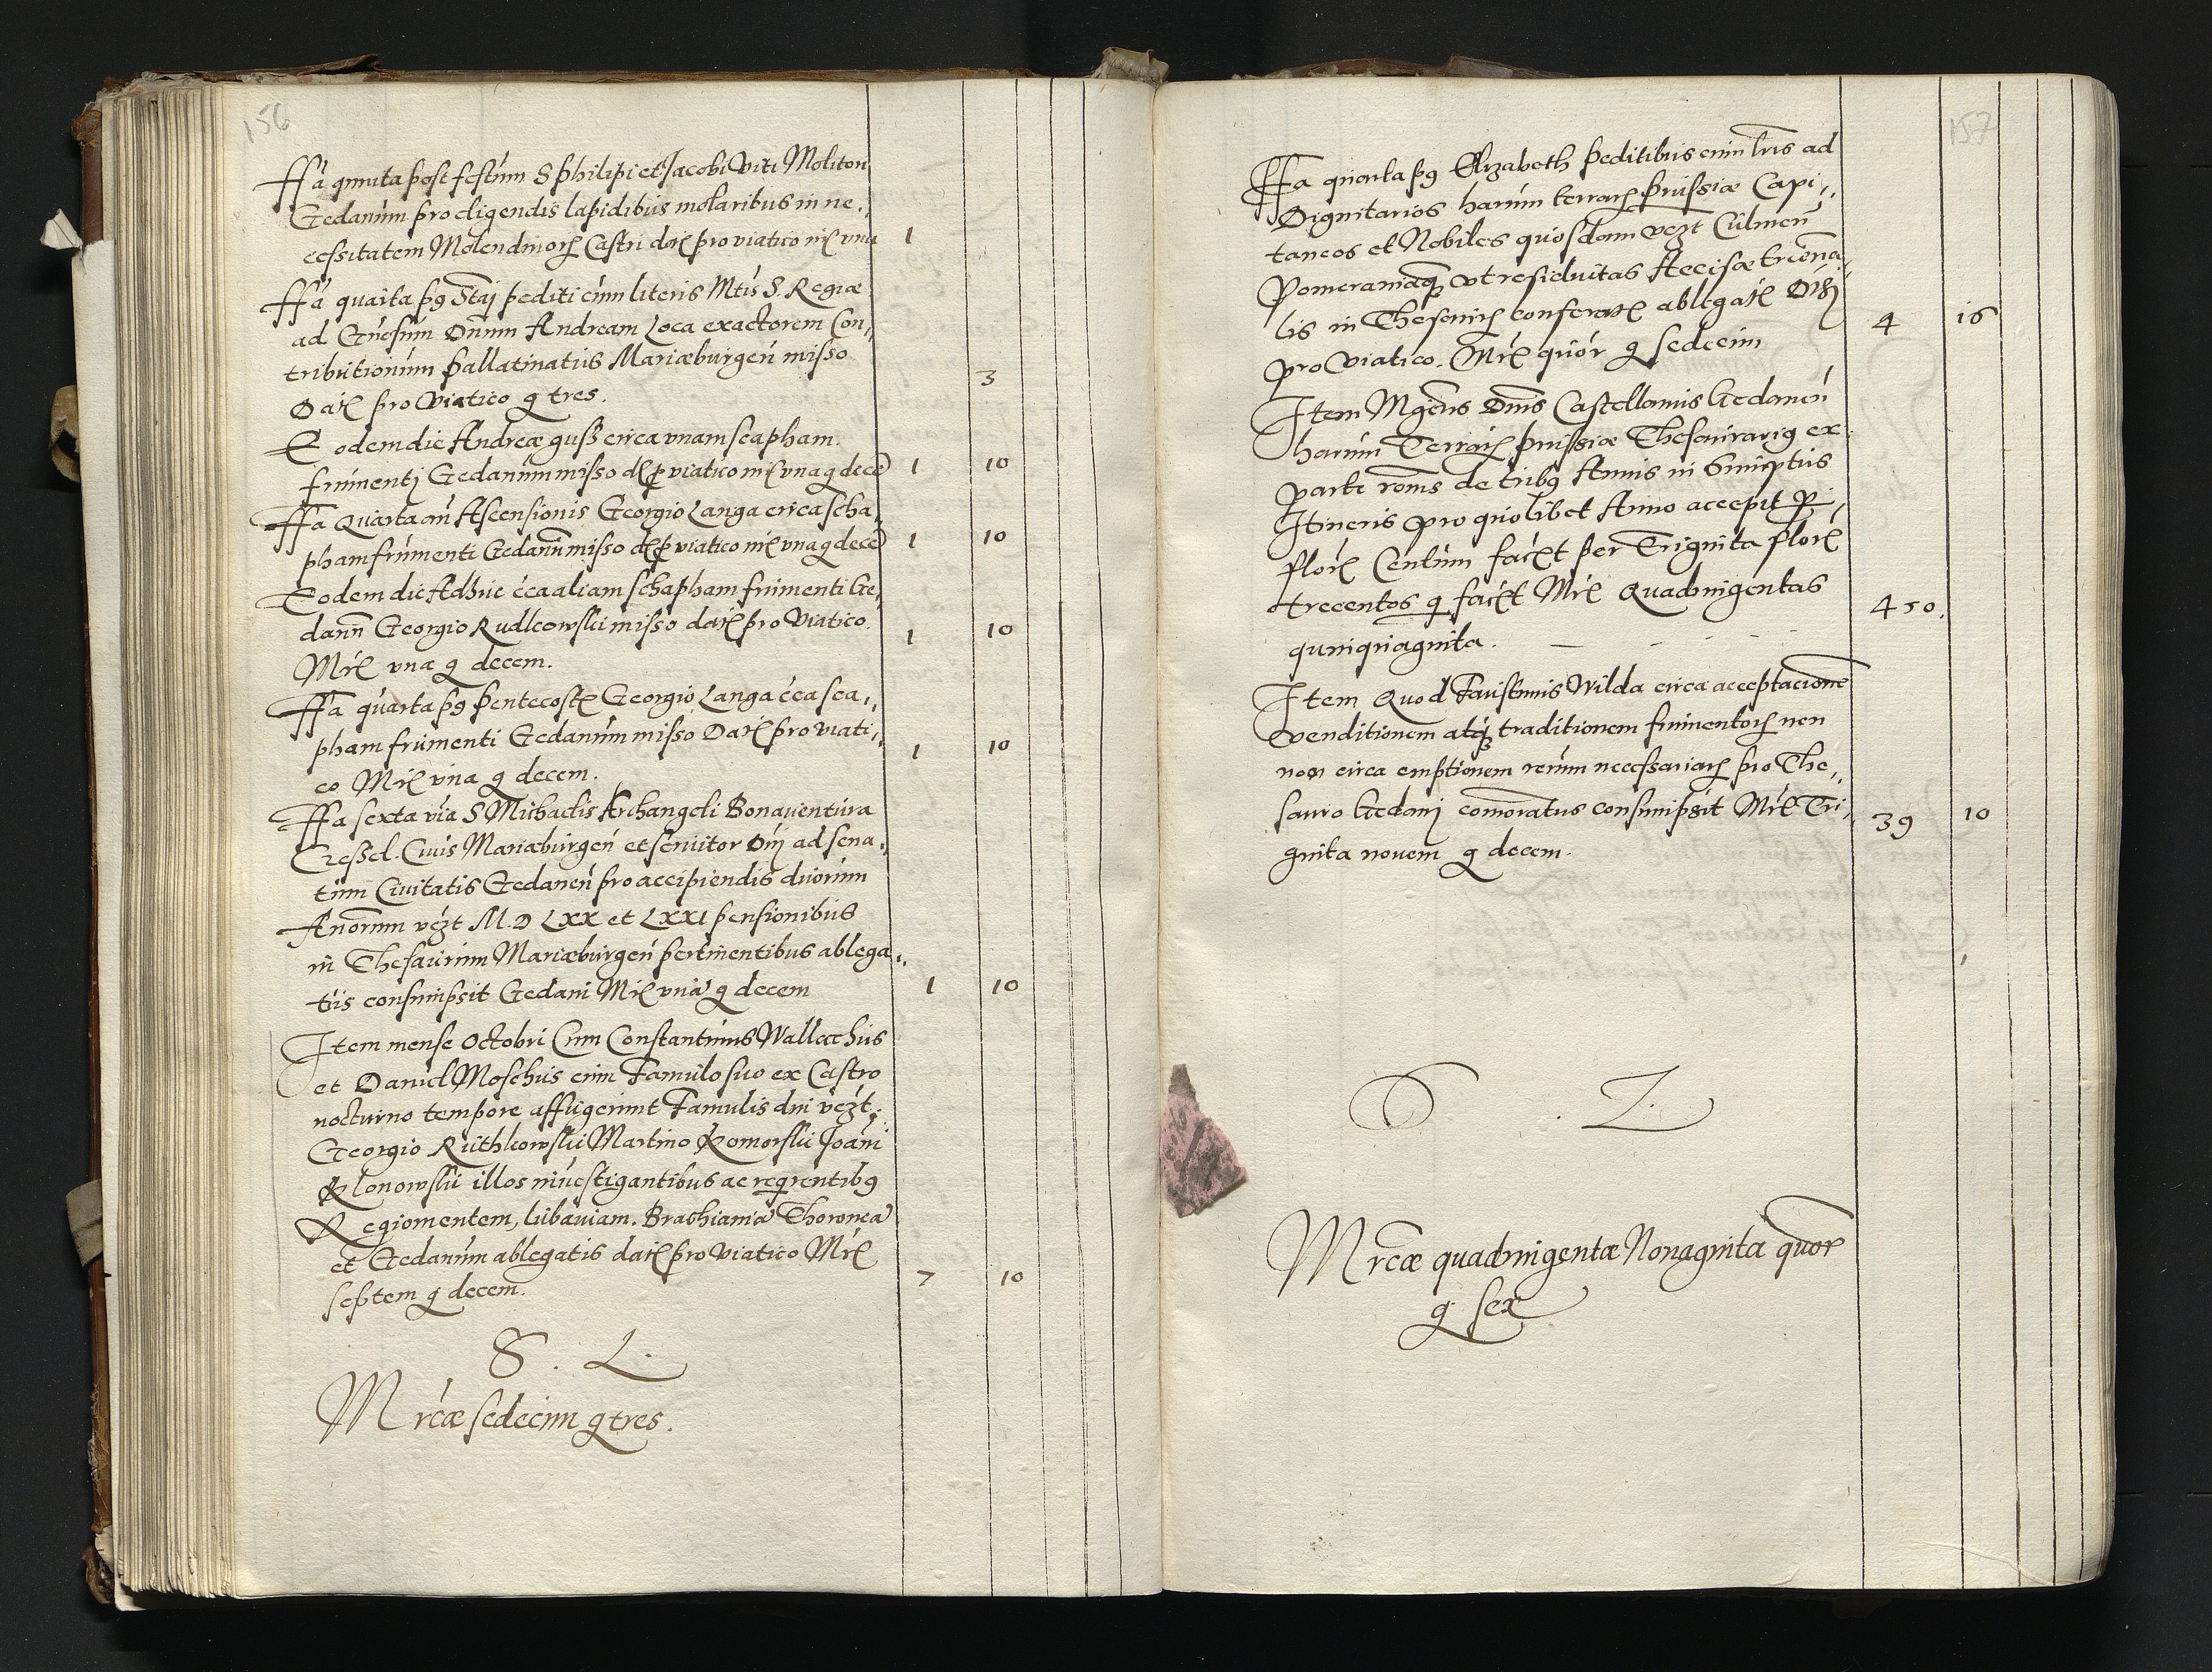 156
ffa quinta post festum S philipi et Jacobi Viti Molitori
Gedanum pro eligendis lapidibus molaribus in ne,,
cessitatem Molendinorz Castri datz pro viatico mrz una 1
ffa quarta pg Stanj pediti cum literis Mtis S. Regiæ
ad Gnesum Dnum Andream Loca exactorem Con,,
tributionum pallatinatus Mariæburgen misso
Datz pro Viatico g tres. 3
Eodem die Andreæ guss circa vnam scapham
frumentj Gedanum misso dz p viatico mrz vna g decē 1 10
ffa Quarta an Ascensionis Georgio Langa circa scha,,
pham frumenti Gedanū misso dz p viatico mrz vna g decē 1 10
Eodem die Adhuc cca aliam schapham frumenti Ge,,
danū Georgio Rudkowski misso datz pro Viatico
Mrz vna g decem. 1 10
ffa quarta pg pentecostz Georgio Langa cca sca,,
pham frumenti Gedanum misso Datz pro viati,,
co Mrz vna g decem. 1 10
ffa sexta via S Michaelis Archangeli Bonauentura
Cressel. Ciuis Mariæburgen et seruitor Dnj ad sena,,
tum Ciuitatis Gedanen pro accipiendis duorum
Anorum vezt M.D LXX et LXXI pensionibus
in Thesaurum Mariæburgen pertinentibus ablega,,
tus consumpsit Gedani Mrz vna g decem 1 10
Item mense Octobri Cum Constantinus Wallachus
et Daniel Moschus cum Famulo suo ex Castro
nocturno tempore aff​ugerunt Famulis dni vezt
Georgio Ruthkowski Martino Komorski Joani
Klonowski illos inuestigantibus ac reqrentibg
Regiomontem, lubauiam. Brathianā Thoronea
et Gedanum ablegatis datz pro Viatico Mrz
septem g decem. 7 10
S. L.
Mrcæ sedecim g tres.
157
ffa quarta pg Elizabeth peditibus cum lris ad
Dignitarios harum terrarz prussiæ Capi,,
taneos et Nobiles quosdam vezt Culmen
Pomeraniaq vt residuitas Accisæ trienna,,
lis in Thesaurz conferatz ablegatz
pro Viatico. Mrz quor g sedecim 4 16
Item Mgcus Dnus Castellanus Gedanen
harum Terrarz prussiæ Thesaurarig ex
parte roms de tribg Annis in Sumptus
Itineris pro quolibet Anno accepit
florz Centum facit per Triginta florz
trecentos g facit Mrz Quadringentas
quinquaginta. 450.
Item Quod Faustinus Wilda circa acceptacionē
venditionem atq traditionem frumentorz nen
non circa emptionem rerum necessariarz pro The,,
sauro Gedanj comoratus consumpsit Mrz Tri,,
ginta nouem g decem. 39 10
S. L.
Mrcæ quadringentæ Nonaginta quor
g sex